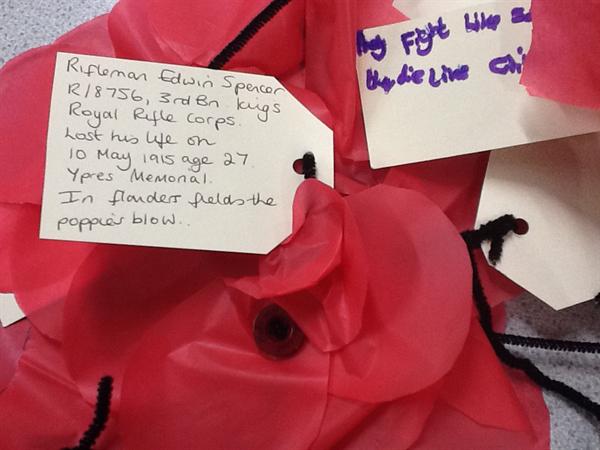 Rifleman Edwin Spencer
R/8756, 3rd Bn. Kings
Royal Rifle Corps.
Lost his life on
10 May 1915 age 27.
Ypres Memorial.
In flanders fields the
poppies blow..
They Fight Like
they die Live